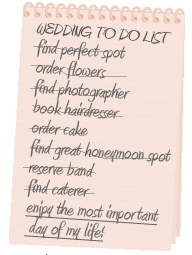 WEDDING TO DO LIST
find perfect spot
order flowers
find photographer
book hairdresser
order cake
find great honeymoon spot
reserve band
find caterer
enjoy the most important
day of my life!